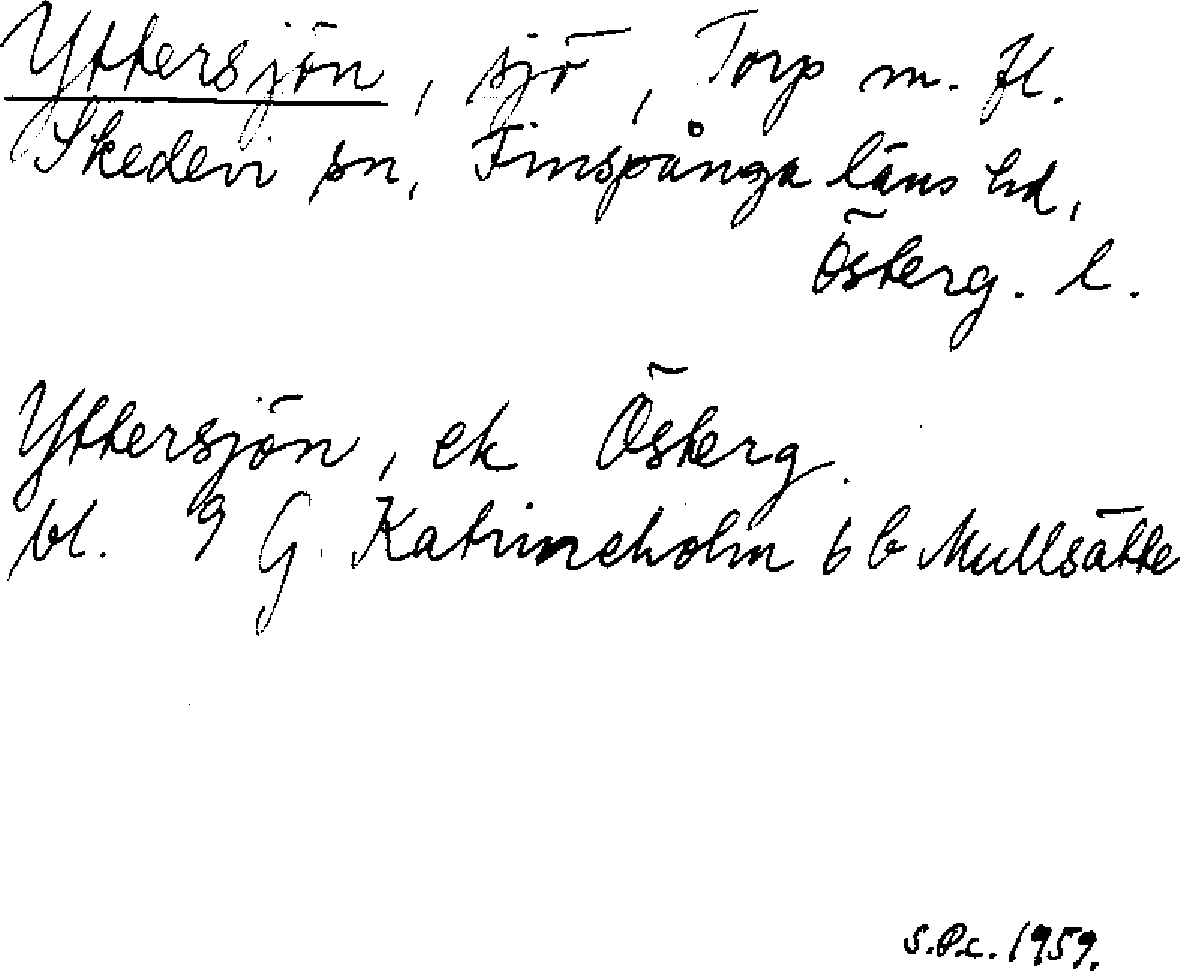 Yttersjön, sjö, Torp m. fl.
Skedevi sn, Finspånga läns hd,
Österg. l.
Yttersjön, ek Österg.
bl. 9 G Katrineholm 6 b Mullsätte
1959.